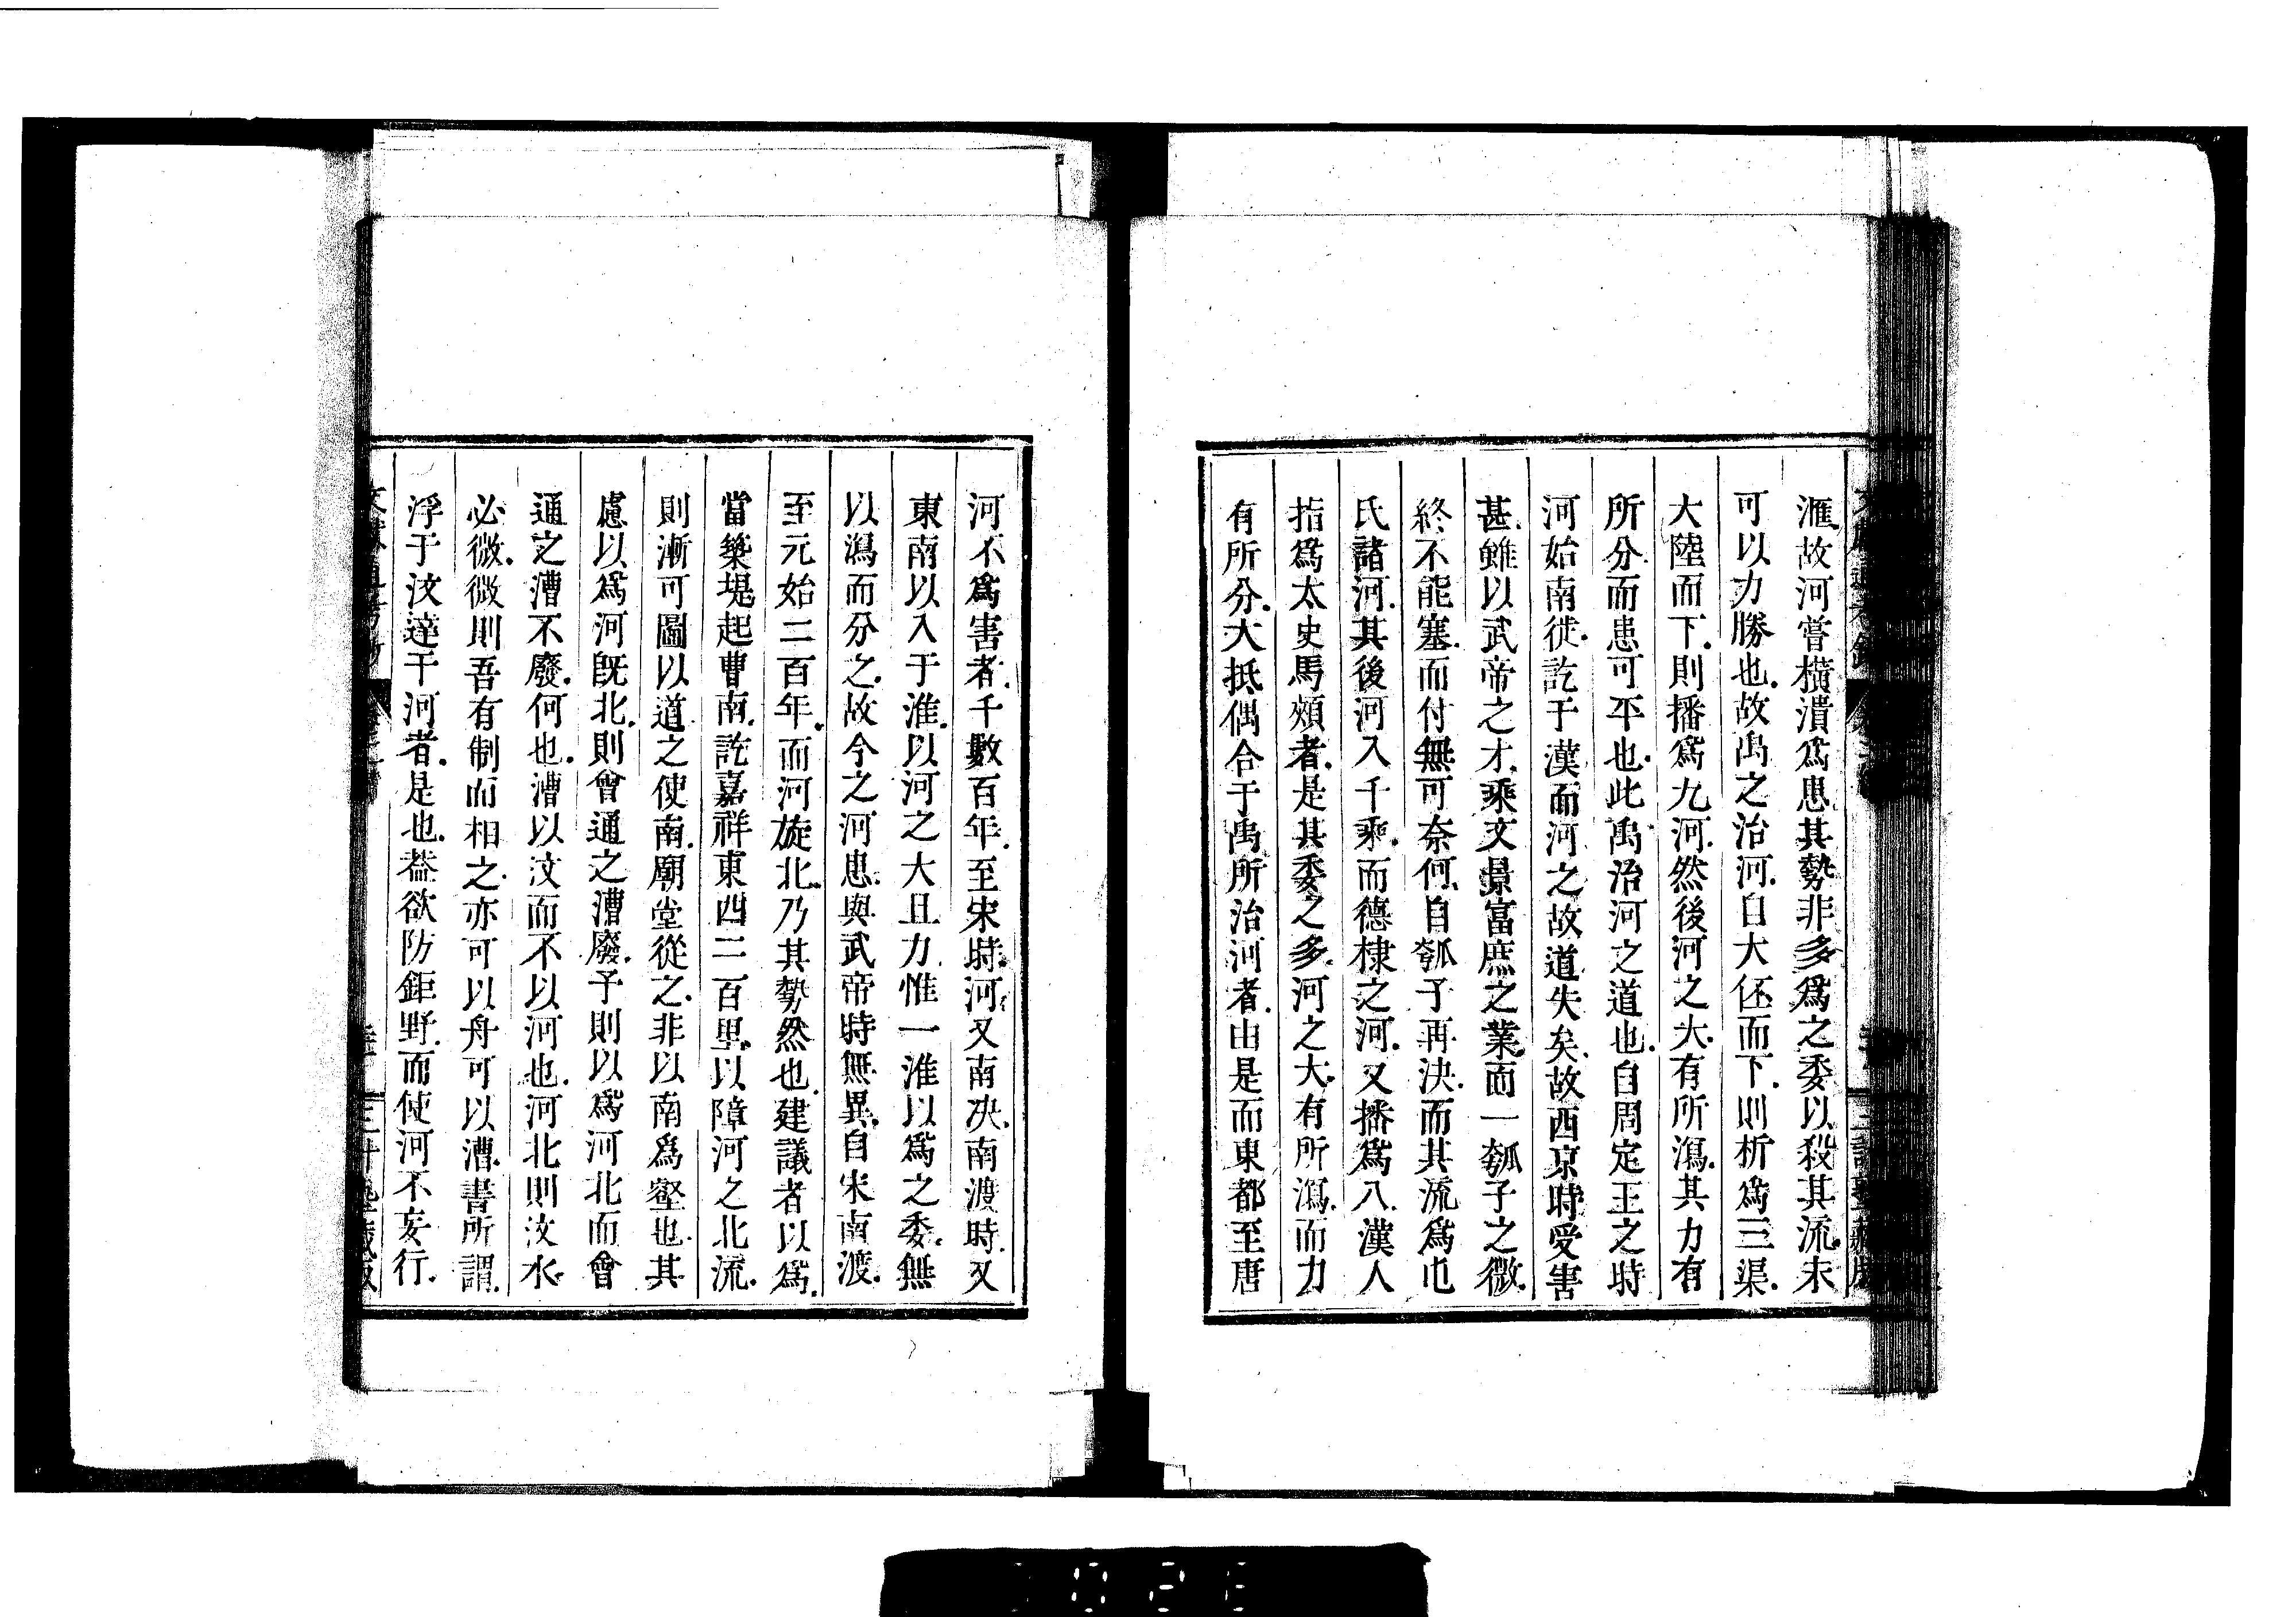 滙故河嘗橫潰爲患其勢非多爲之委以殺其流未
可以力勝也故禹之治河自大伾而下則析爲三渠
大陸而下則播爲九河然後河之大有所瀉其力有
所分而患可平也此禹治河之道也自周定王之時
河始南徙訖于漢而河之故道失矣故西京時受害
甚雖以武帝之才乘文景富庶之業而一瓠子之微
終不能塞而付無可奈何自瓠子再決而其流爲屯
氏諸河其後河入千乘而德棣之河又播爲八漢人
指爲太史馬頰者是其委之多河之大有所瀉而力
有所分大抵偶合于禹所治河者由是而東都至唐
河不爲害者千數百年至宋時河又南決南渡時又
東南以入于淮以河之大且力惟一淮以爲之委無
以瀉而分之故今之河患與武帝時無異自宋南渡
至元始二百年而河旋北乃其勢然也建議者以爲
當築堤起曹南訖嘉祥東西二百里以障河之北流
則漸可圖以道之使南廟堂從之非以南爲壑也其
慮以爲河旣北則會通之漕廢予則以爲河北而會
通之漕不廢何也漕以汶而不以河也河北則汶水
必微微則吾有制而相之亦可以舟可以漕書所謂
浮于汶達于河者是也葢欲防鉅野而使河不妄行